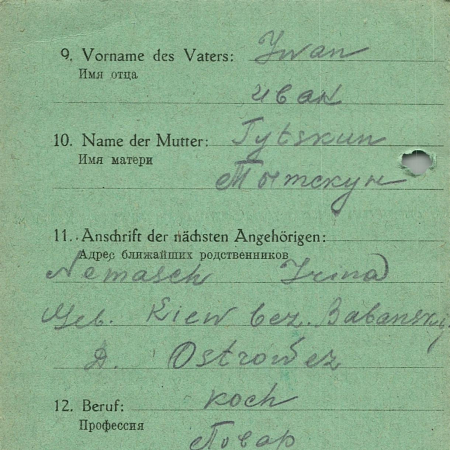 9. Vorname des Vaters: Iwan
Имя отца
иван
10. Name der Mutter: Tytskun
Имя матери
Тытскун
11. Anschrift der nächsten Angehörigen:
Адрес ближайших родственников
Nemasch Irina
Geb. Kiew bez. Babansky
D. Ostrowez
12. Beruf: koch
Профессия
Повар